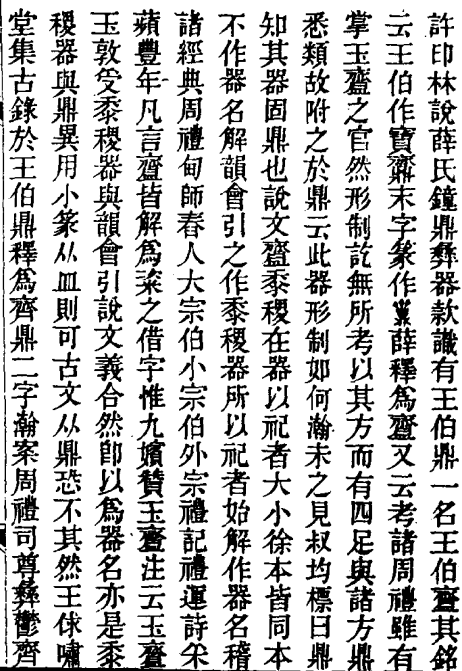 許印林說薛氏鐘鼎彝器款識有王伯鼎一名王伯齍其銘
云王伯作寶齋末字篆作薛釋爲齍又云考諸周禮雖有
掌玉齍之官然形制訖無所考以其方而有四足與諸方鼎
悉類故附之於鼎云此器形制如何瀚未之見叔均標曰鼎
知其器固鼎也說文齍黍稷在器以祀者大小徐本皆同本
不作器名解韻會引之作黍稷器所以祀者始解作器名稽
諸經典周禮甸師舂人大宗伯小宗伯外宗禮記禮運詩采
蘋豐年凡言齍皆解爲粢之借字惟九嬪贊玉齍注云玉齍
玉敦受黍稷器與韻會引說文義合然卽以爲器名亦是黍
稷器與鼎異用小篆从皿則可古文从鼎恐不其然王俅嘯
堂集古錄於王伯鼎釋爲齊鼎二字瀚案周禮司尊彝鬱齊